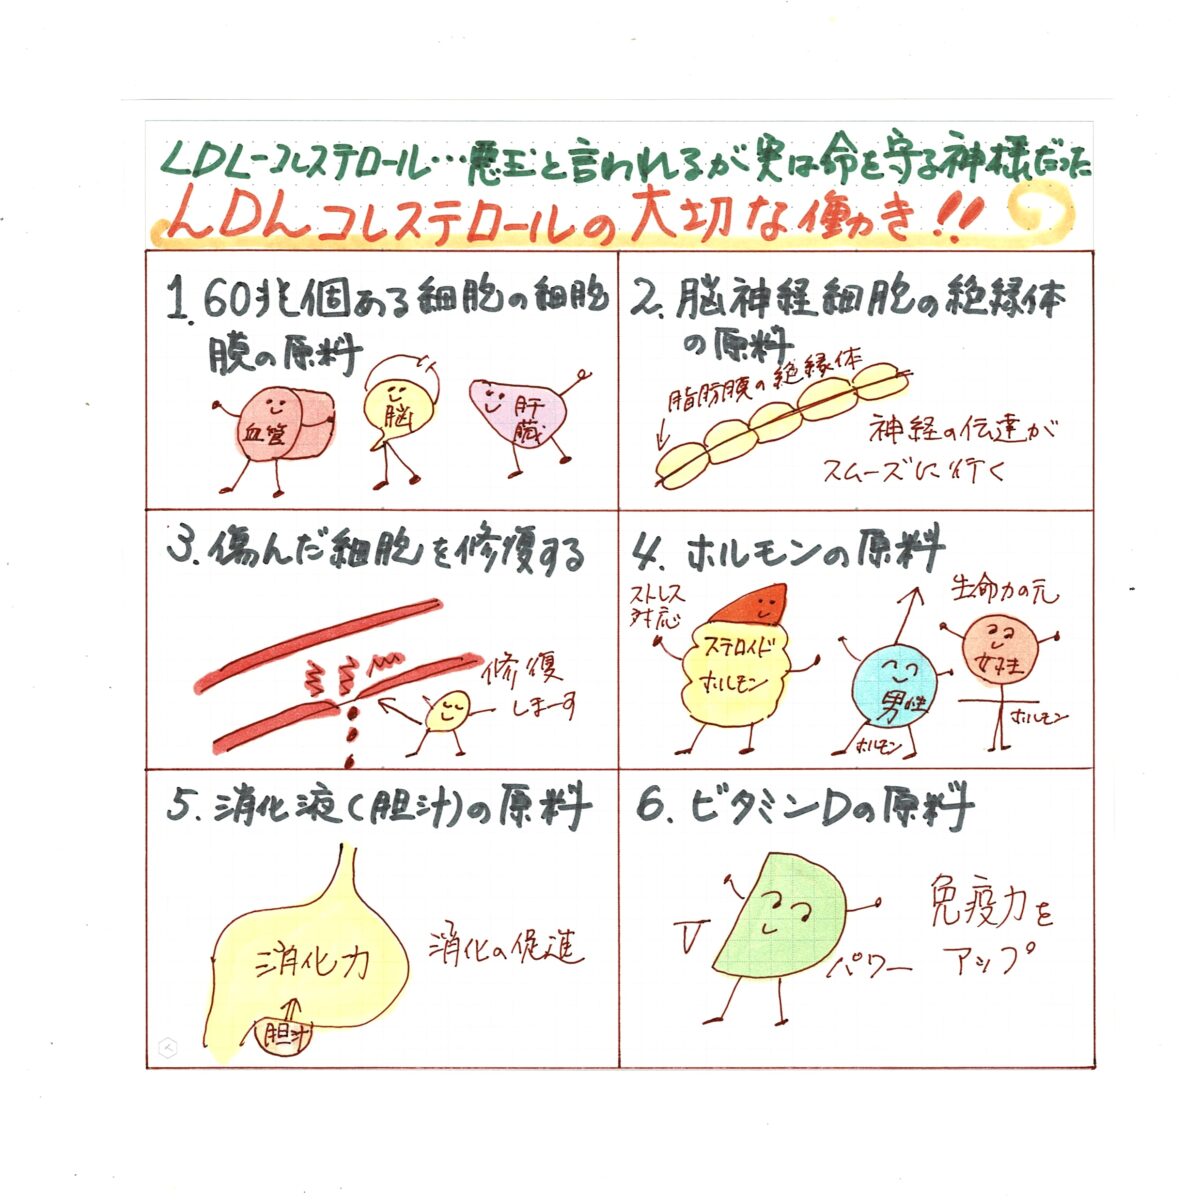 LDL-コレステロール…悪玉と言われるが実は命を守る神様だった
LDLコレステロールの大切な働き!!
1. 60兆個ある細胞の細胞
膜の原料
血管
脳
肝
臓
2. 脳神経細胞の絶縁体
の原料
脂肪膜の絶縁体
神経の伝達が
スムーズに行く
3. 傷んだ細胞を修復する
修復
しまーす
4. ホルモンの原料
ストレス
対応
ステロイド
ホルモン
男性
ホルモン
生命力の元
女性
ホルモン
5. 消化液(胆汁)の原料
消化力
胆汁
消化の促進
6. ビタミンDの原料
V
パワー
免疫力を
アップ